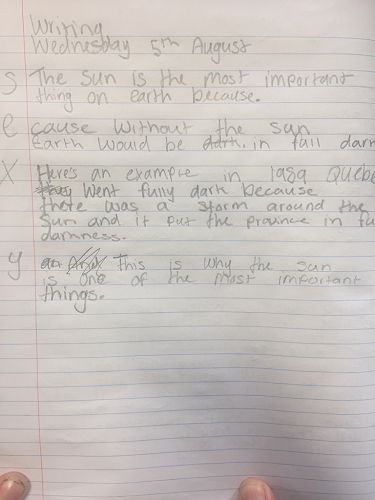 Writing
Wednesday 5th August
S The Sun is the most important
thing on earth because.
e cause without the sun
Earth would be dark. in full darn
X Here's an example in 1989 Quebe
went fully dark because
there was a storm around the
Sun and it put the province in fu
darnness.
y this is why the sun
is one of the most important
things.